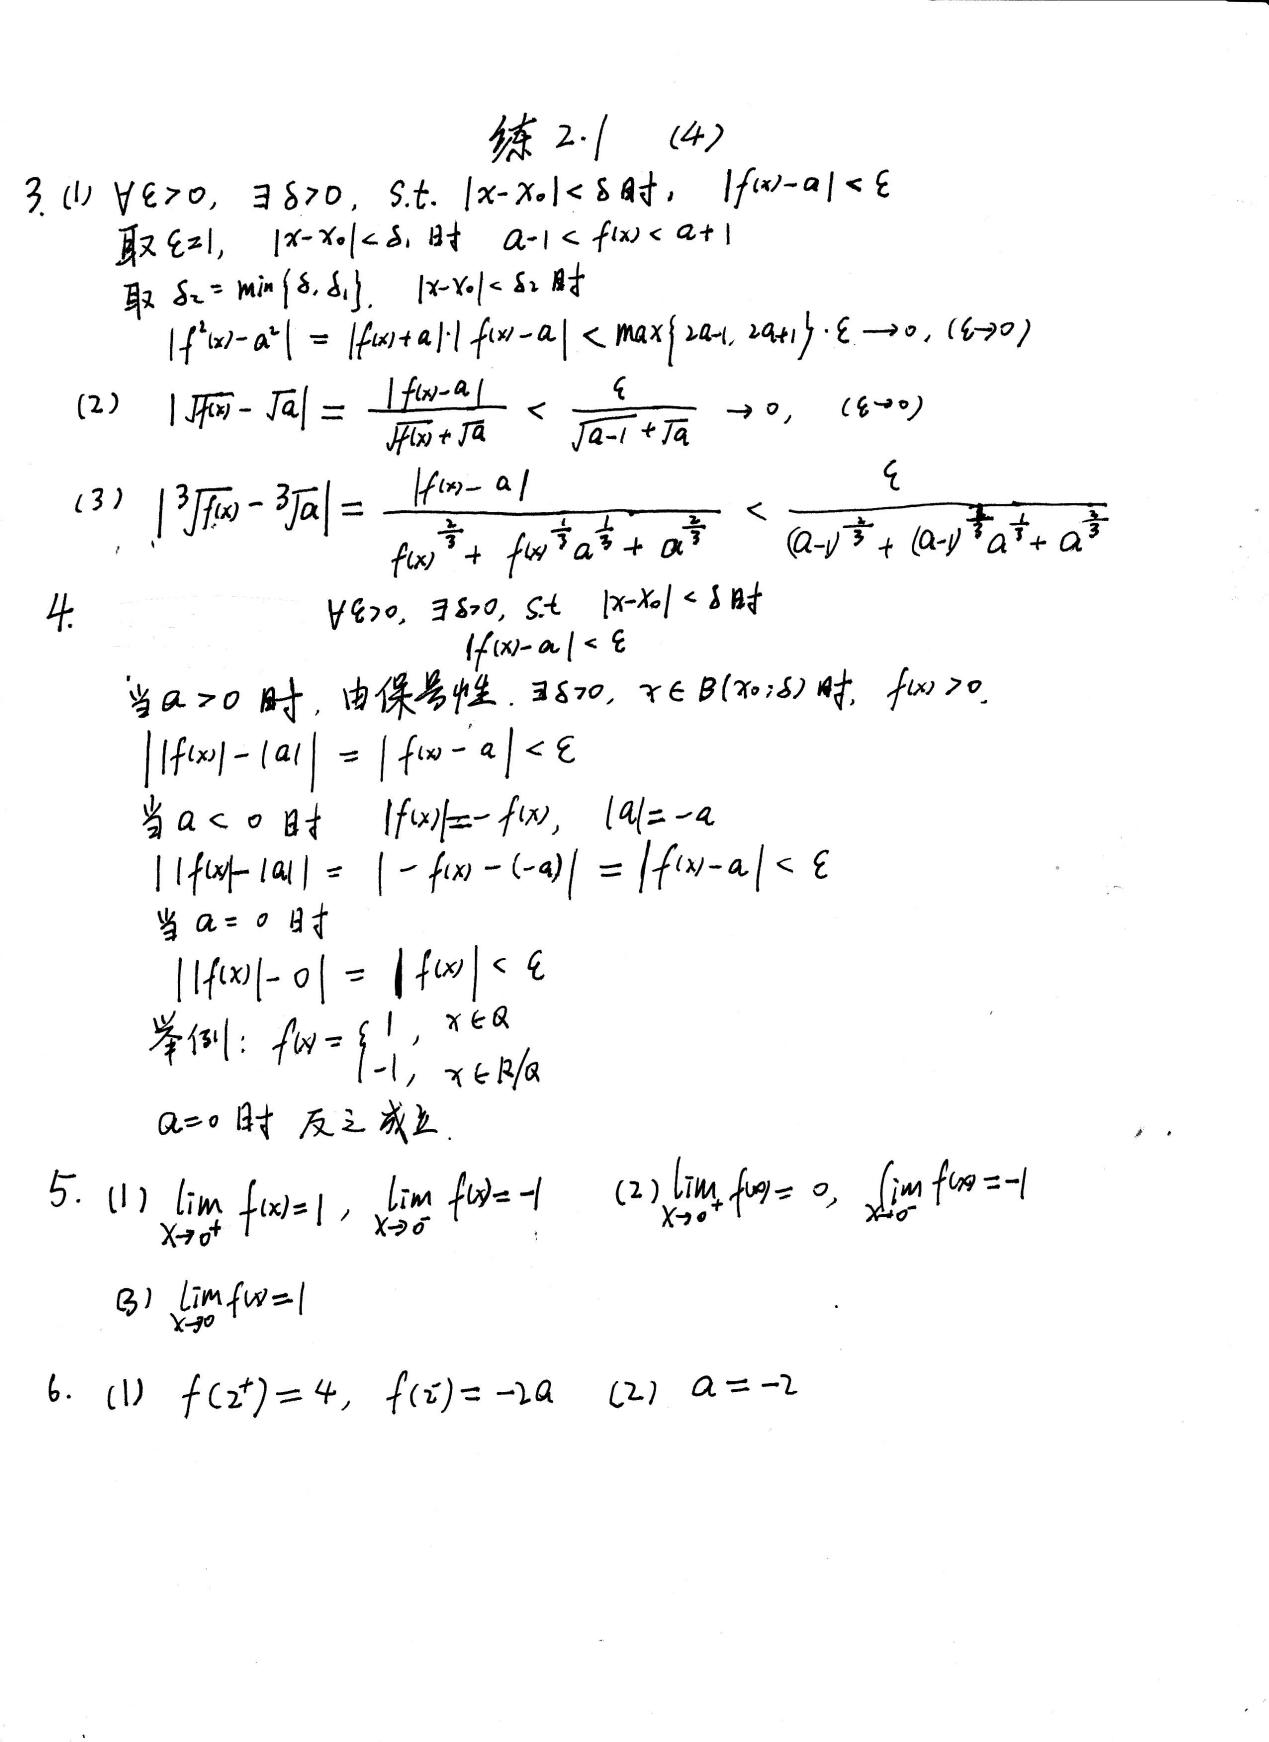 练 2.1 (4)
3. (1) ∀ε>0, ∃δ>0, s.t. |x-x₀|<δ时, |f(x)-a|<ε
取ε=1, |x-x₀|<δ₁时 a-1<f(x)<a+1
取 δ₂=min{δ,δ₁}. |x-x₀|<δ₂时
|f²(x)-a²| = |f(x)+a|·|f(x)-a| < max{2a-1, 2a+1}·ε →0, (ε→0)
(2) |√f(x) - √a| = |f(x)-a| / (√f(x)+√a) < ε / (√(a-1)+√a) →0, (ε→0)
(3) |³√f(x) - ³√a| = |f(x)-a| / (f(x)^(2/3) + f(x)^(1/3) a^(1/3) + a^(2/3)) < ε / ((a-1)^(2/3) + (a-1)^(1/3) a^(1/3) + a^(2/3))
4. ∀ε>0, ∃δ>0, s.t |x-x₀|<δ时
|f(x)-a|<ε
当a>0时, 由保号性. ∃δ>0, x∈B(x₀;δ)时, f(x)>0.
||f(x)|-|a|| = |f(x)-a|<ε
当a<0时 |f(x)|=-f(x), |a|=-a
||f(x)|-|a|| = |-f(x)-(-a)| = |f(x)-a|<ε
当a=0时
||f(x)|-0| = |f(x)|<ε
举例: f(x)={1, x∈Q
-1, x∈R/Q
a=0时 反之成立.
5. (1) lim x→0⁺ f(x)=1, lim x→0⁻ f(x)=-1 (2) lim x→0⁺ f(x)=0, lim x→0⁻ f(x)=-1
(3) lim x→0 f(x)=1
6. (1) f(2⁺)=4, f(2⁻)=-2a (2) a=-2